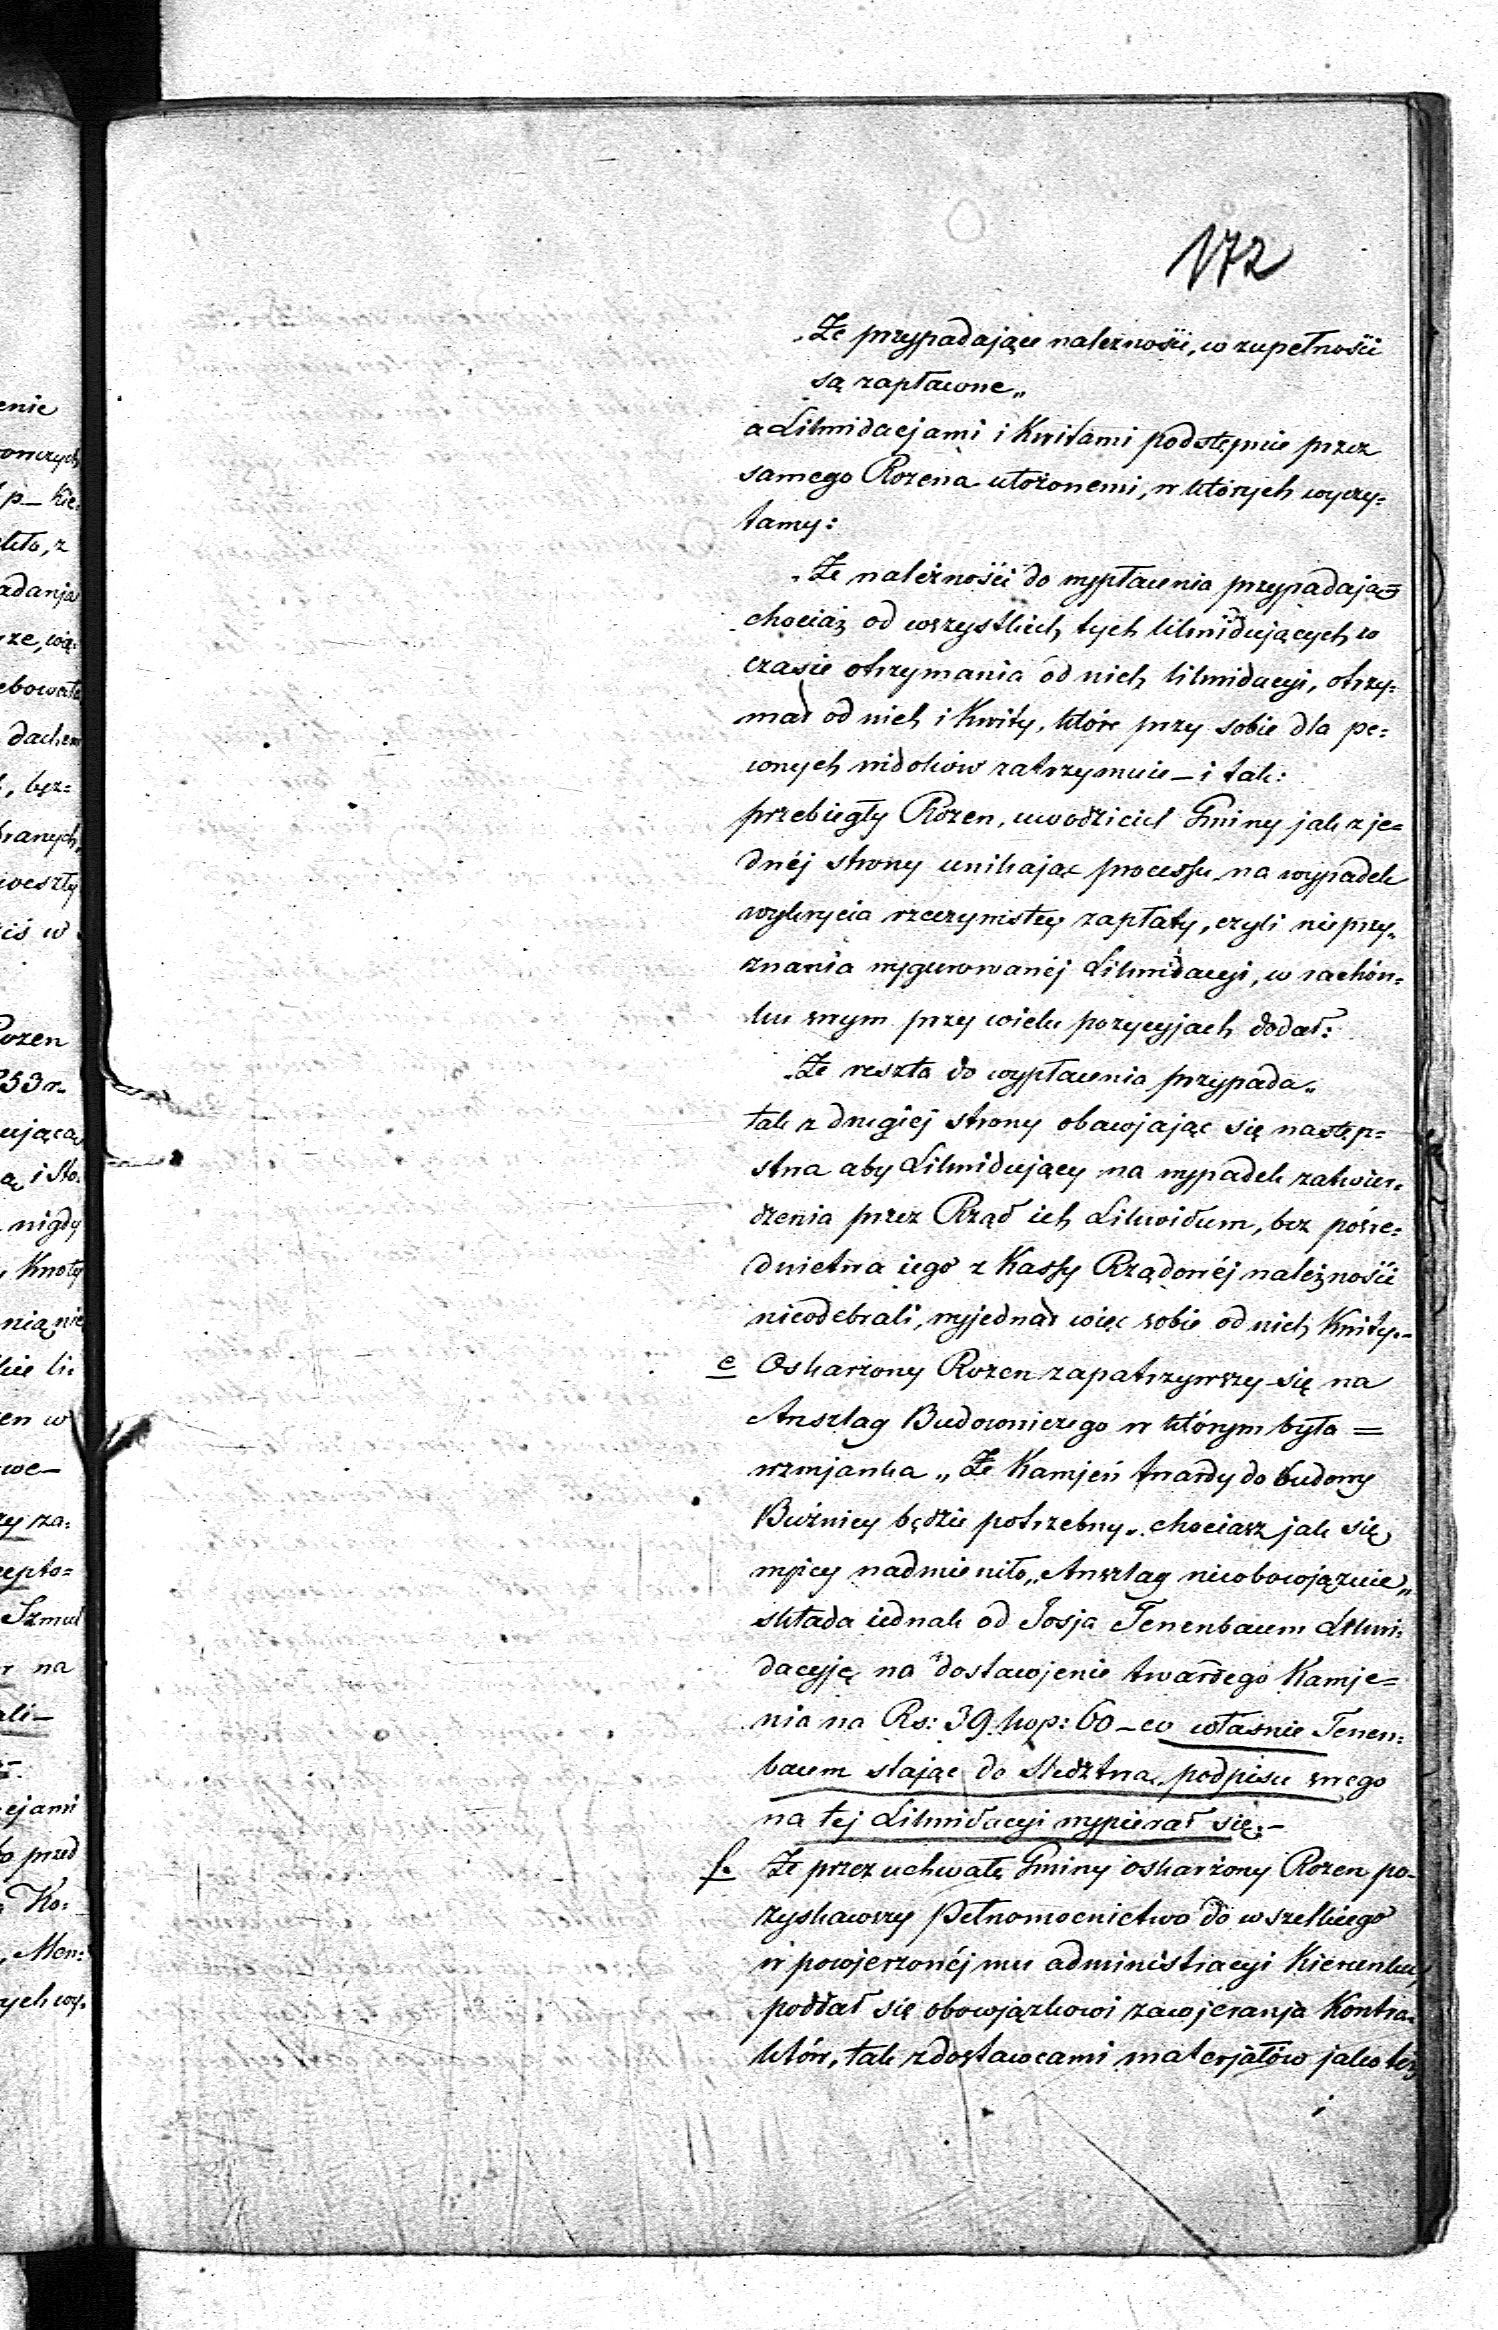 172
„Że przypadające należności, w zupełności
są zapłacone„
a Likwidacjami i Kwitami podstępnie przez
samego Rozena ułożonemi, w których wyczy=
tamy:
„Że należności do wypłacenia przypadają=
chociaż od wszystkich tych likwidujących w
czasie otrzymania od nich likwidacyi, otrzy=
mał od nich i Kwity, które przy sobie dla pe=
wnych widoków zatrzymuie – i tak:
przebiegły Rozen, uwodziciel Gminy jak z je=
dnéj strony unikając processu na wypadek
wykrycia rzeczywistey zapłaty, czyli nieprzy=
znania wygurowanéj Likwidacyi, w rachón=
ku swym przy wielu pozycyjach dodał:
„Że reszta do wypłacenia przypada„
tak z drugiéj strony obawjając się następ=
stwa aby Likwidujący na wypadek zatwier=
dzenia przez Rząd ich Likwidum, bez pośre=
dnictwa iego z Kassy Rządowéj należności
nieodebrali, wyjednał więc sobie od nich Kwity.–
e Oskarzony Rozen zapatrzywszy się na
Anszlag Budowniczego w którym była =
wzmjanka „Że Kamjeń twardy do budowy
Buźnicy będzie potrzebny„ chociasz jak się
wyicy nadmieniło „Anszlag nieobowjązuie„
składa iednak od Josja Tenenbaum Likwi=
dacyję na dostawjenie twardego Kamje=
nia na Rs: 39 kop: 60 – co własnie Tenen=
baum stając do Sledztwa, podpisu swego
na tej Likwidacyi wypierał się.–
f. Że przez uchwałę Gminy oskarżony Rozen po=
zyskawszy Pełnomocnictwo do wszelkiego
w powjerzonéj mu administracyi Kierunku,
poddał się obowjązkowi zawjerania Kontra=
któw, tak z dostawcami materjałów jako też
i
enie
dachem
nigdy
Szmul
na
przed